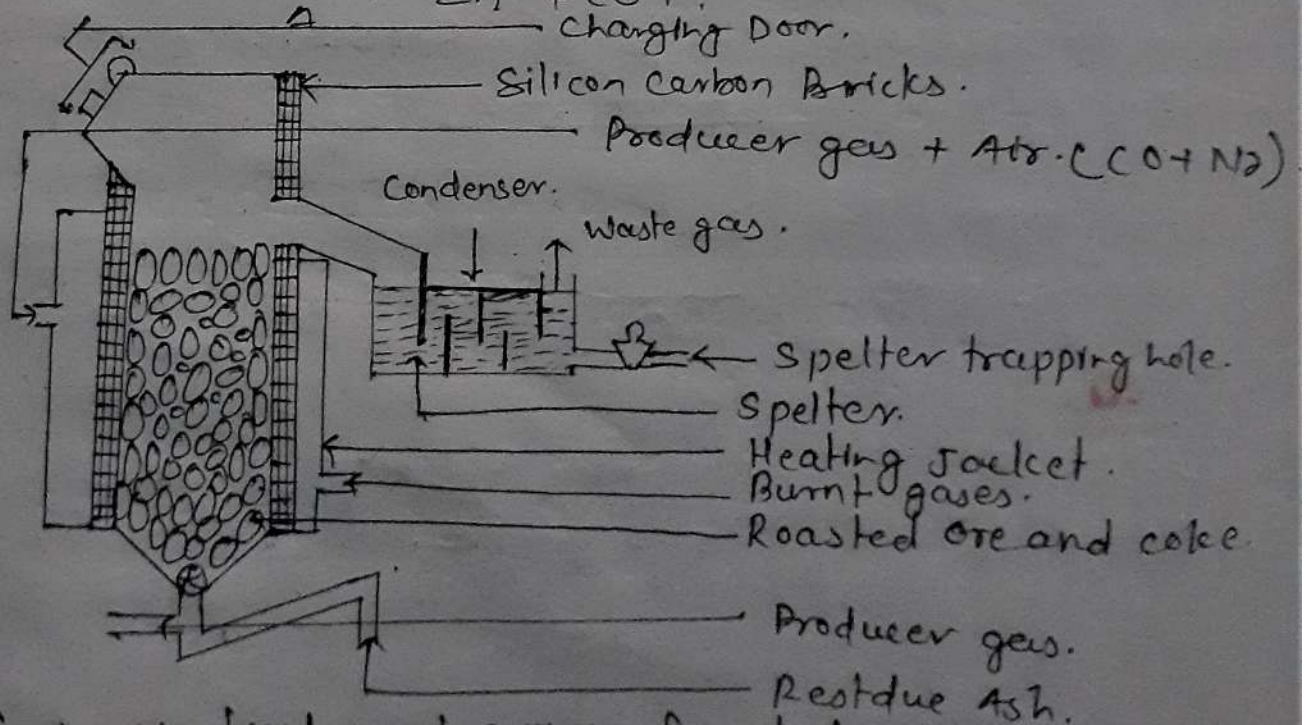 Charging Door.
Silicon Carbon Bricks.
Producer gas + Air. (CO + N2)
Condenser.
Waste gas.
Spelter trapping hole.
Spelter.
Heating Jacket.
Burnt gases.
Roasted ore and coke
Producer gas.
Residue Ash.